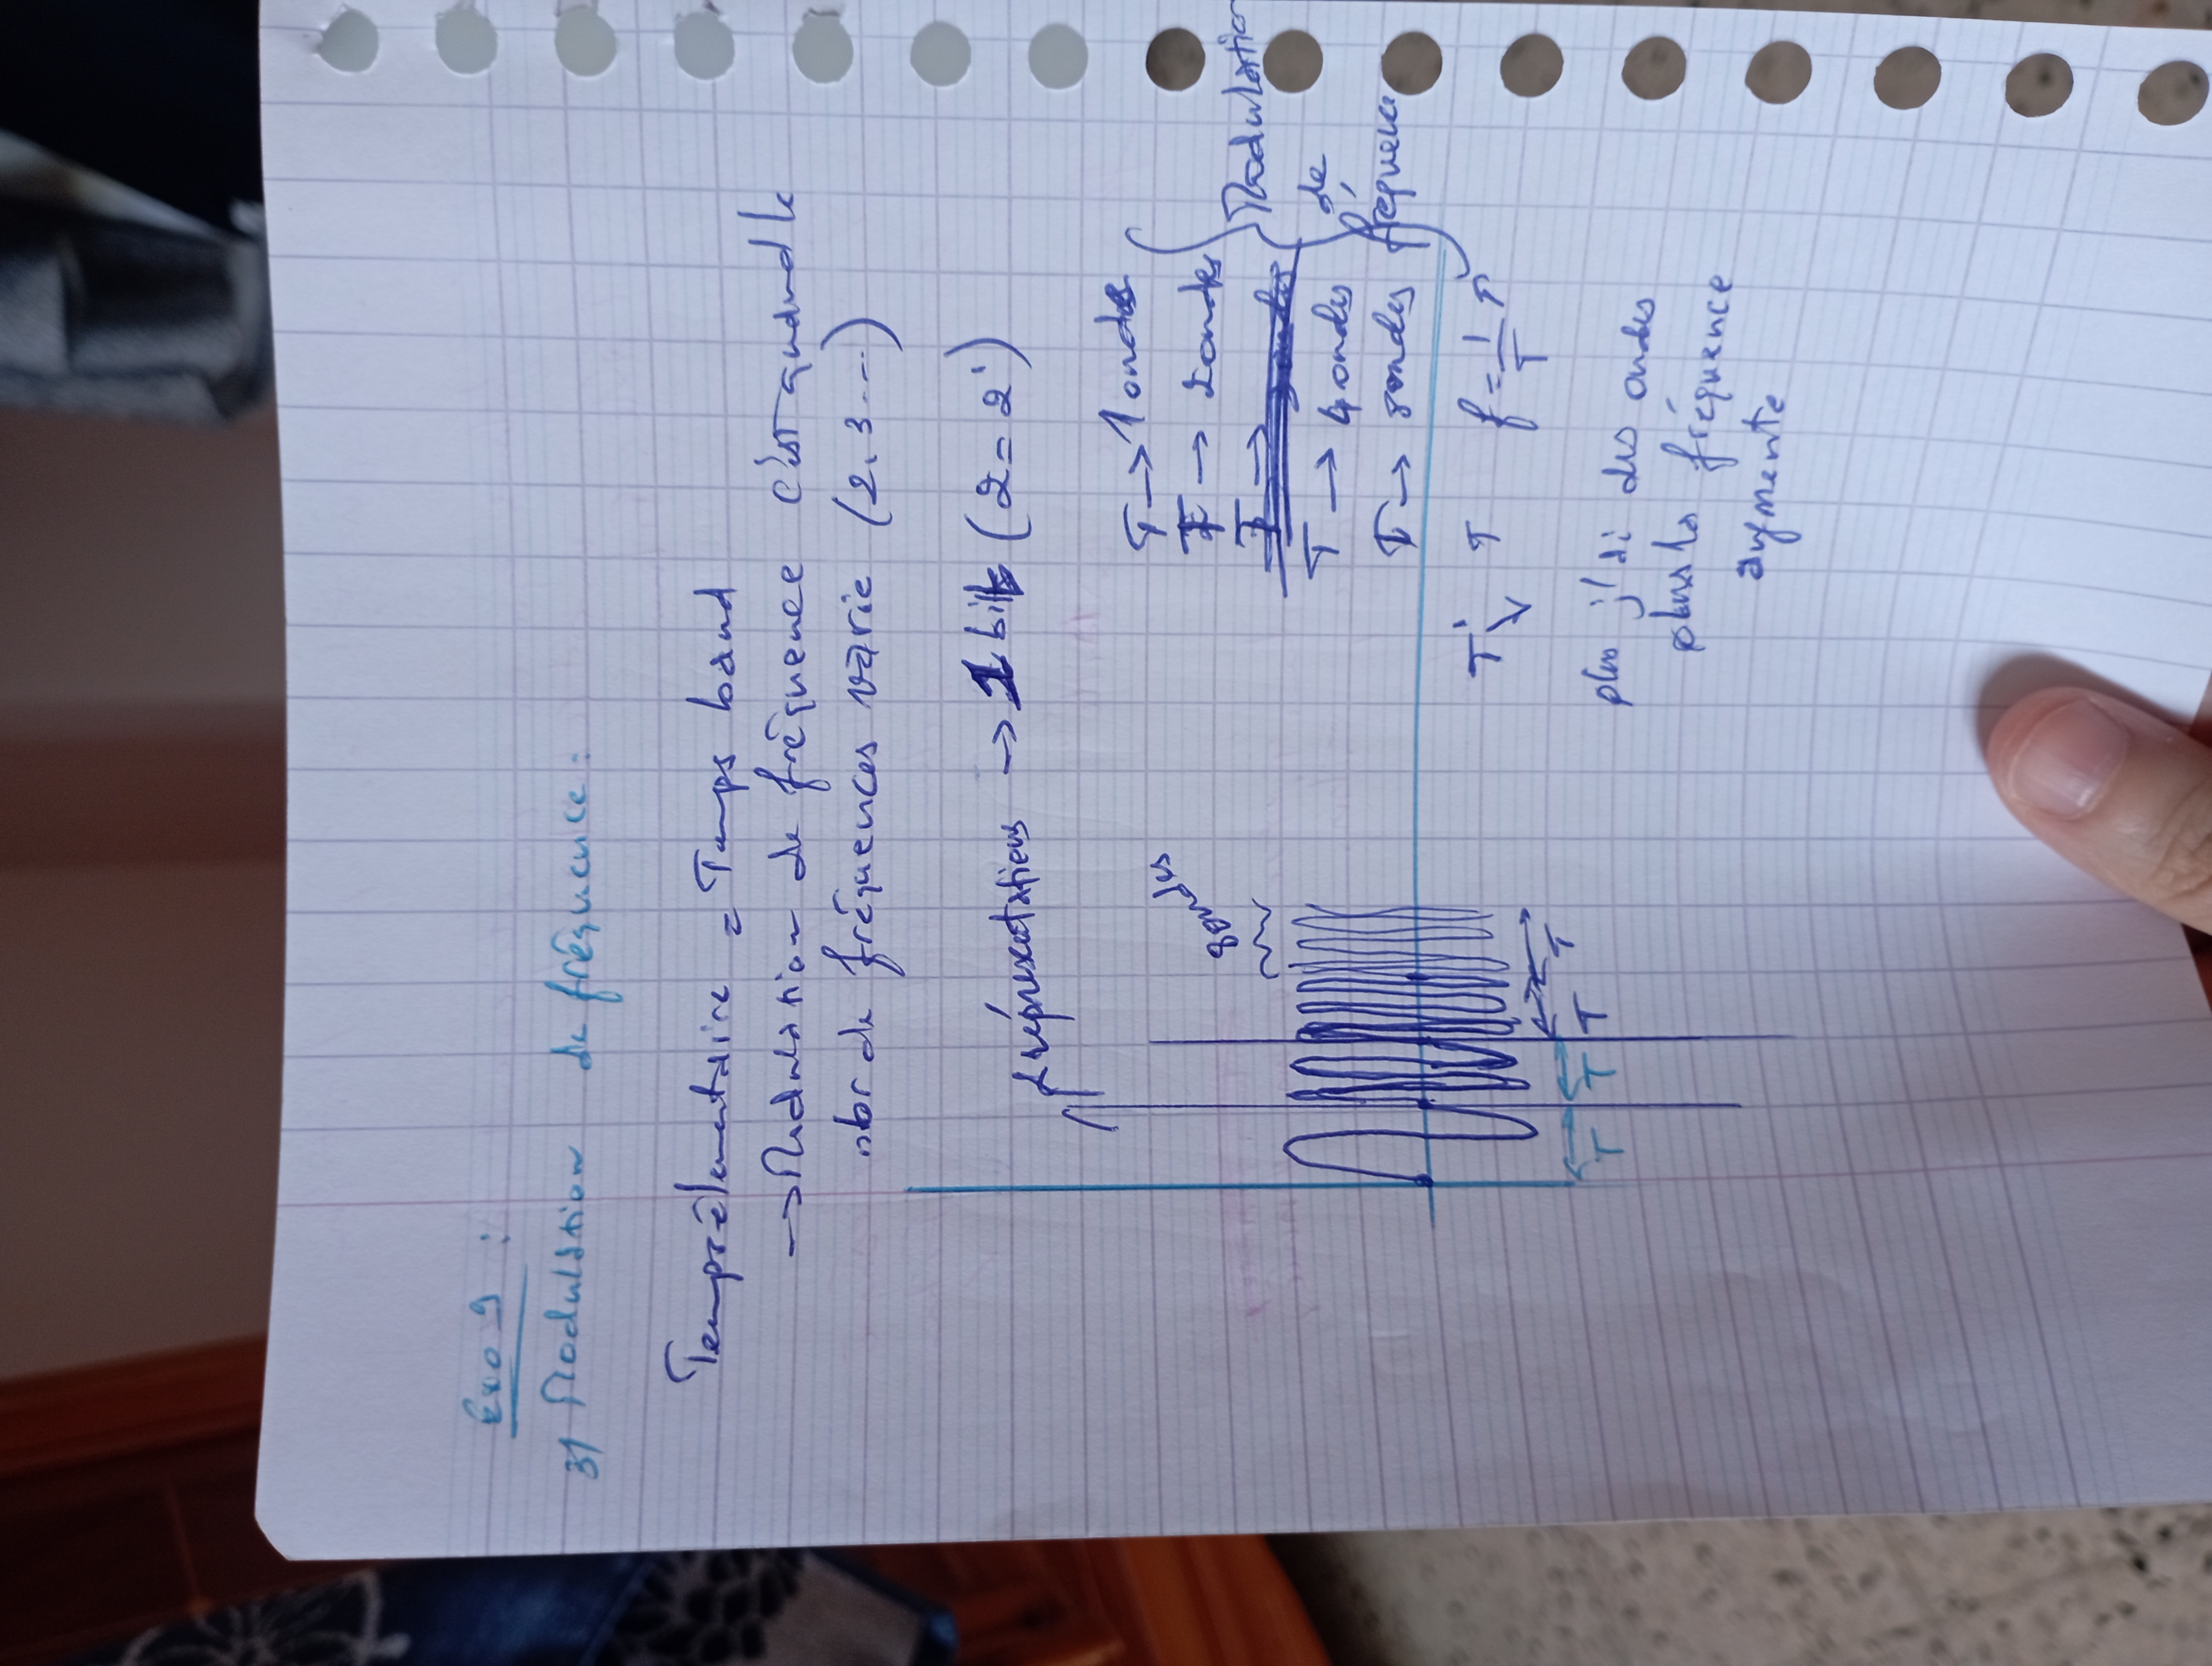 Exo 9 :
3) Modulation de fréquence :
Temps élementaire = Temps baud
→ Modulation de fréquence c'est quand le
nbr de fréquences varie (2, 3 ...)
2 réprésentations → 1 bit (2 = 2¹)
8 ondes
T → 1 onde
T → 2 ondes
T → 4 ondes
T → 8 ondes
Modulation
de
fréquence
T T T T
T ↓ T f = 1/T
plus j'ai des ondes
plus la fréquence
augmente